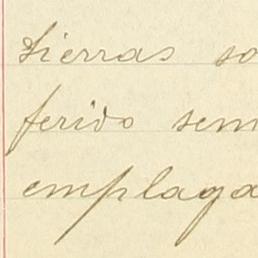 tierras so
ferido sem
emplaga